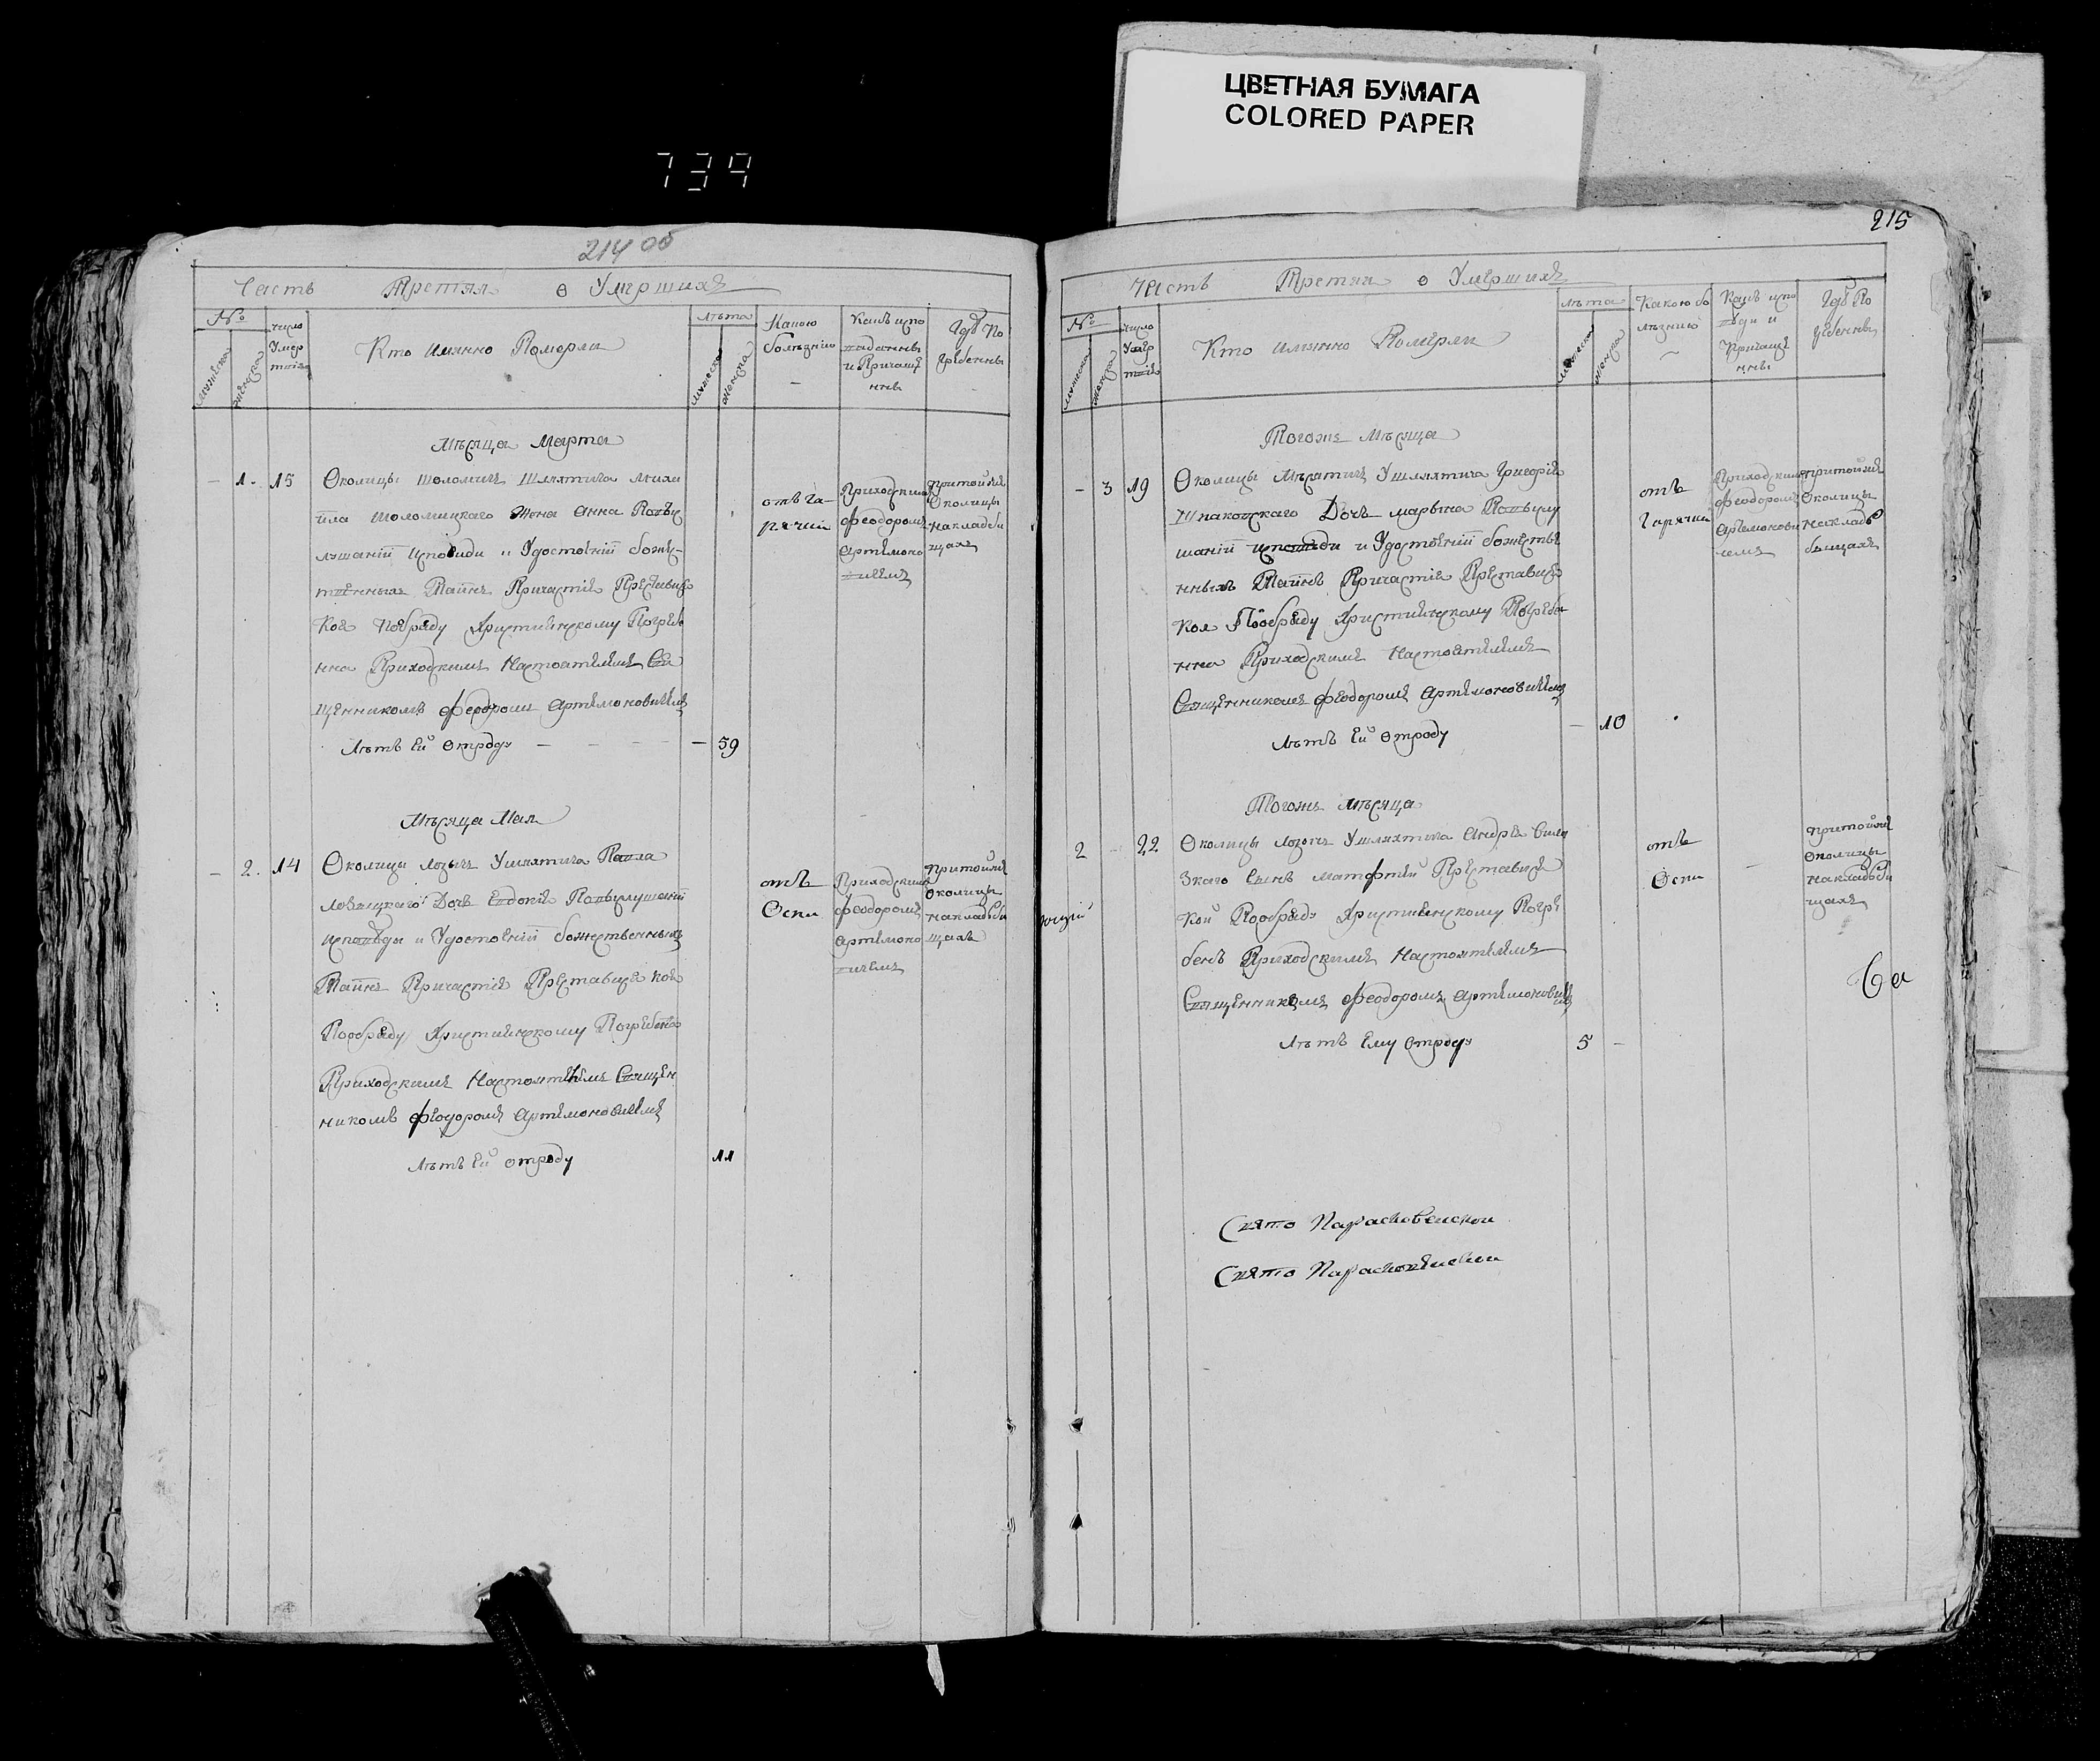 ЦВЕТНАЯ БУМАГА
COLORED PAPER
739
214 об
Часть Третяя о Умершихъ
№
мужеска
женска
число Умер
Кто имянно Померли
лѣта
мужеска
женска
Какою
болѣзнію
Кѣмъ испо
вѣданны
и Причаще
нны
Гдѣ По
гребенны
Мѣсяца Марта
- 1. 15
Околицы Шоломичъ Шляхтича Михаи
ила Шоломицкаго Жена Анна Повыс
лушаніи Исповѣди и Удостоеніи божес-
твенныхъ Таинъ Причастіе Преставися
Коя Пообряду Християнскому Погребе
нна Приходскимъ Настоятелемъ Свя
щенникомъ Феодоромъ Артимоновичемъ
Лѣтъ Ей Отроду - - - - 59
отъ га-
рячки
Приходским
Феодоромъ
Артимоно
вичемъ
Притойже
Околицы
Накладби
щахъ
Мѣсяца Мая
- 2. 14
Околицы Лозичъ Ушляхтича Павла
Дочь Евдокія Повыслушаніи
Исповѣди и Удостоеніи божественныхъ
Таинъ Причастіе Преставися Коя
Пообряду Християнскому Погребенна
Приходскимъ Настоятелемъ Священ
никомъ Феодоромъ Артимоновичемъ
Лѣтъ Ей Отроду 11
отъ
Оспи
Приходским
Феодоромъ
Артимоно
вичемъ
Притойже
Околицы
Накладьби
щахъ
215
Часть Третяя о Умершихъ
№
мужеска
женска
число
Умер
Кто имянно Померли
лѣта
мужеска
женска
Какою бо
лѣзнию
Кѣмъ испо
вѣди и
Причаще
нны
Гдѣ По
гребенны
Тогожъ Мѣсяца
- 3 19
Околицы Ушляхтича Григорія
Шпаковскаго Дочь Марьяна Повыслу
шаніи исповѣди и Удостоеніи божестве
нныхъ Таинъ Причастіе Преставися
Коя Пообряду Християнскому Погребе
нна Приходскимъ Настоятелемъ
Священникомъ Феодоромъ Артимоновичемъ
Лѣтъ Ей Отроду - 10
отъ
Гарячки
Приходским
Феодоромъ
Артимонови
чемъ
притойже
Околицы
Накладь
бищахъ
Тогожъ мѣсяца
2 - 22
Околицы Лозичъ Ушляхтича Андрея
Сынъ Матфей Преставися
Кой Пообряду Християнскому Погре
бенъ Приходскимъ Настоятелемъ
Священникомъ Феодоромъ Артимоновичемъ
Лѣтъ Ему Отроду 5 -
отъ
Оспи
-
Притойже
Околицы
Накладьби
щахъ
Свято Парасковеискои
Свято Парасковеискои